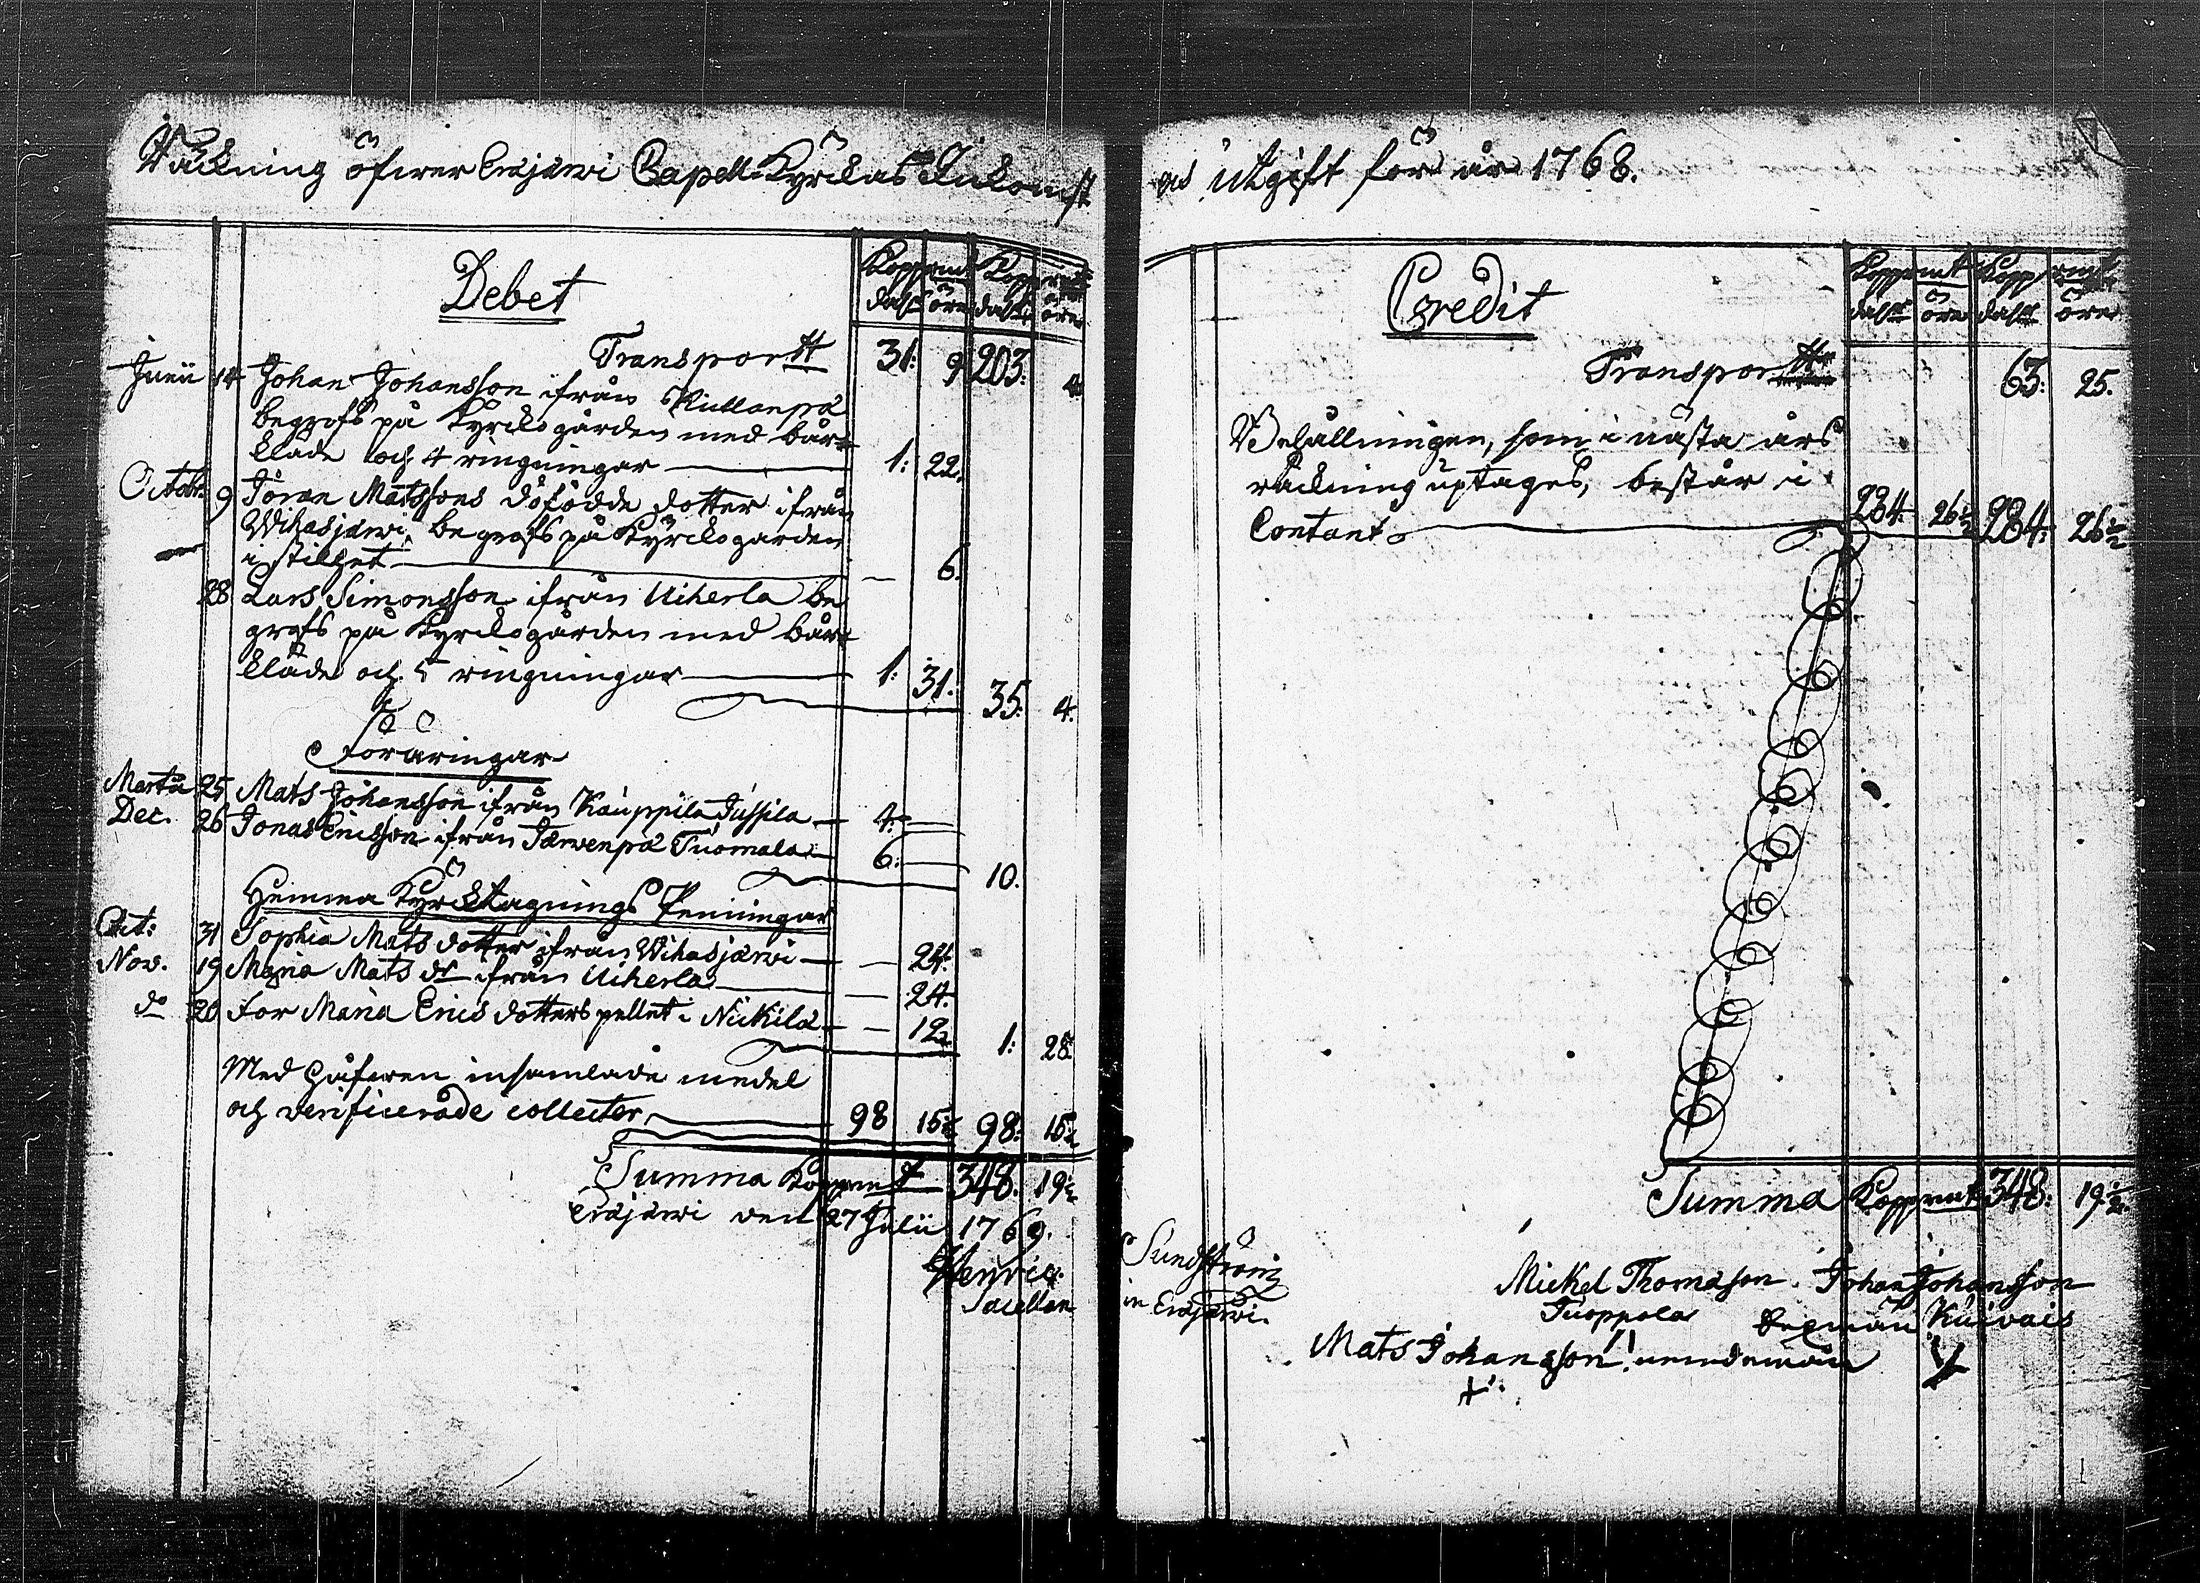 Räkning öfwer Eräjärwi Capell Kyrckas Inkomst
Debet
Kopp:mt Kopp:mt
dalr öre dalr öre
Transportt 31: 9 203: 4
Junii 14 Johan Johansson ifrån Kullanpä
begrofs på Kyrckogården med bår=
kläde och 4 ringningar 1: 22.
Octobr. 9 Jöran Matssons döfödde dotter ifrån
Wihasjärwi, begrofs på Kyrckogården
i stilhet — 6.
28 Lars Simonsson ifrån Uiherla be
grofs på Kyrckogården med bår=
kläde och 5 ringningar 1: 31. 35: 4.
Föräringar
Martii 25 Mats Johansson ifrån Kauppila Jussila 4: —
Dec. 26 Jonas Ericsson ifrån Järvenpä Tuomala 6: — 10.
Hemma Kyrcktagnings Penningar
Oct: 31 Sophia Mats dotter ifrån Wihasjärwi — 24.
Nov. 19 Maria Mats dr ifrån Uiherla — 24.
do 20 för Maria Erics dotters pellet i Nickilä — 12 1: 28.
Med håfwen insamlade medel
och verificerade collecter 98 15½ 98: 15½
Summa Koppmt 348. 19½
Eräjärwi den 27 Julii 1769.
Henric
Sacellan
och utgift för år 1768.
Credit
Koppmt Koppmt
dalr öre dalr öre
Transportt 63: 25.
Behållningen, som i nästa års
räkning uptages, består i
Contant 284. 26½ 284: 26½
Summa Koppmt 348: 19½
Sundström
in Eräjärwi.
Mickel Thomasson Johan Johansson
Tuoppola Kuivais
Mats Johansson nemndeman